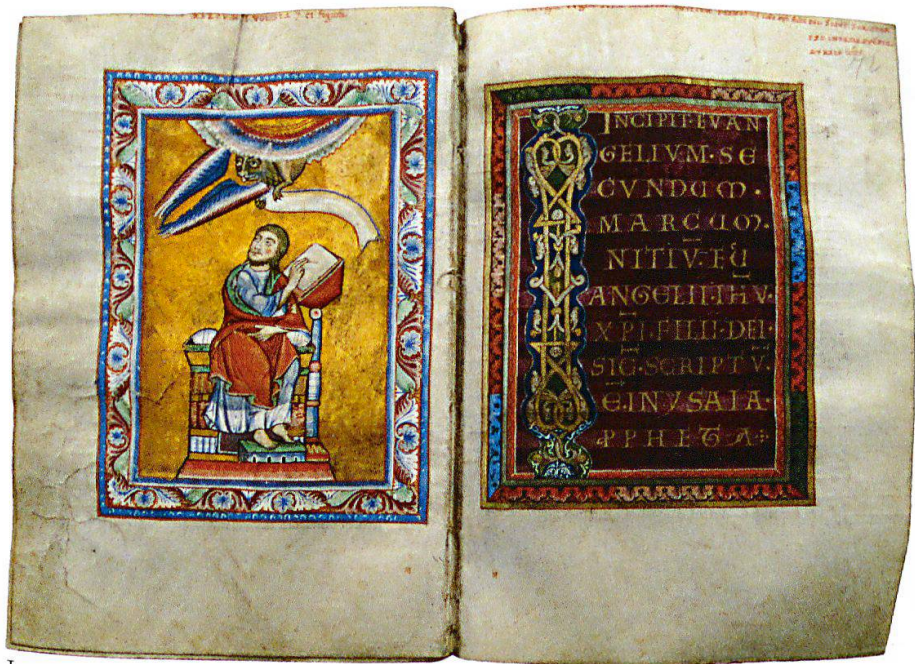 INCIPIT·EVAN
GELIUM·SE
CUNDUM·
MARCUM·
NITIV̅·EU
ANGELII·IHV̅·
XPI̅·FILII·DEI·
SIC̅·SCRIPTV̅·
E̅·IN YSAIA·
PPHETA